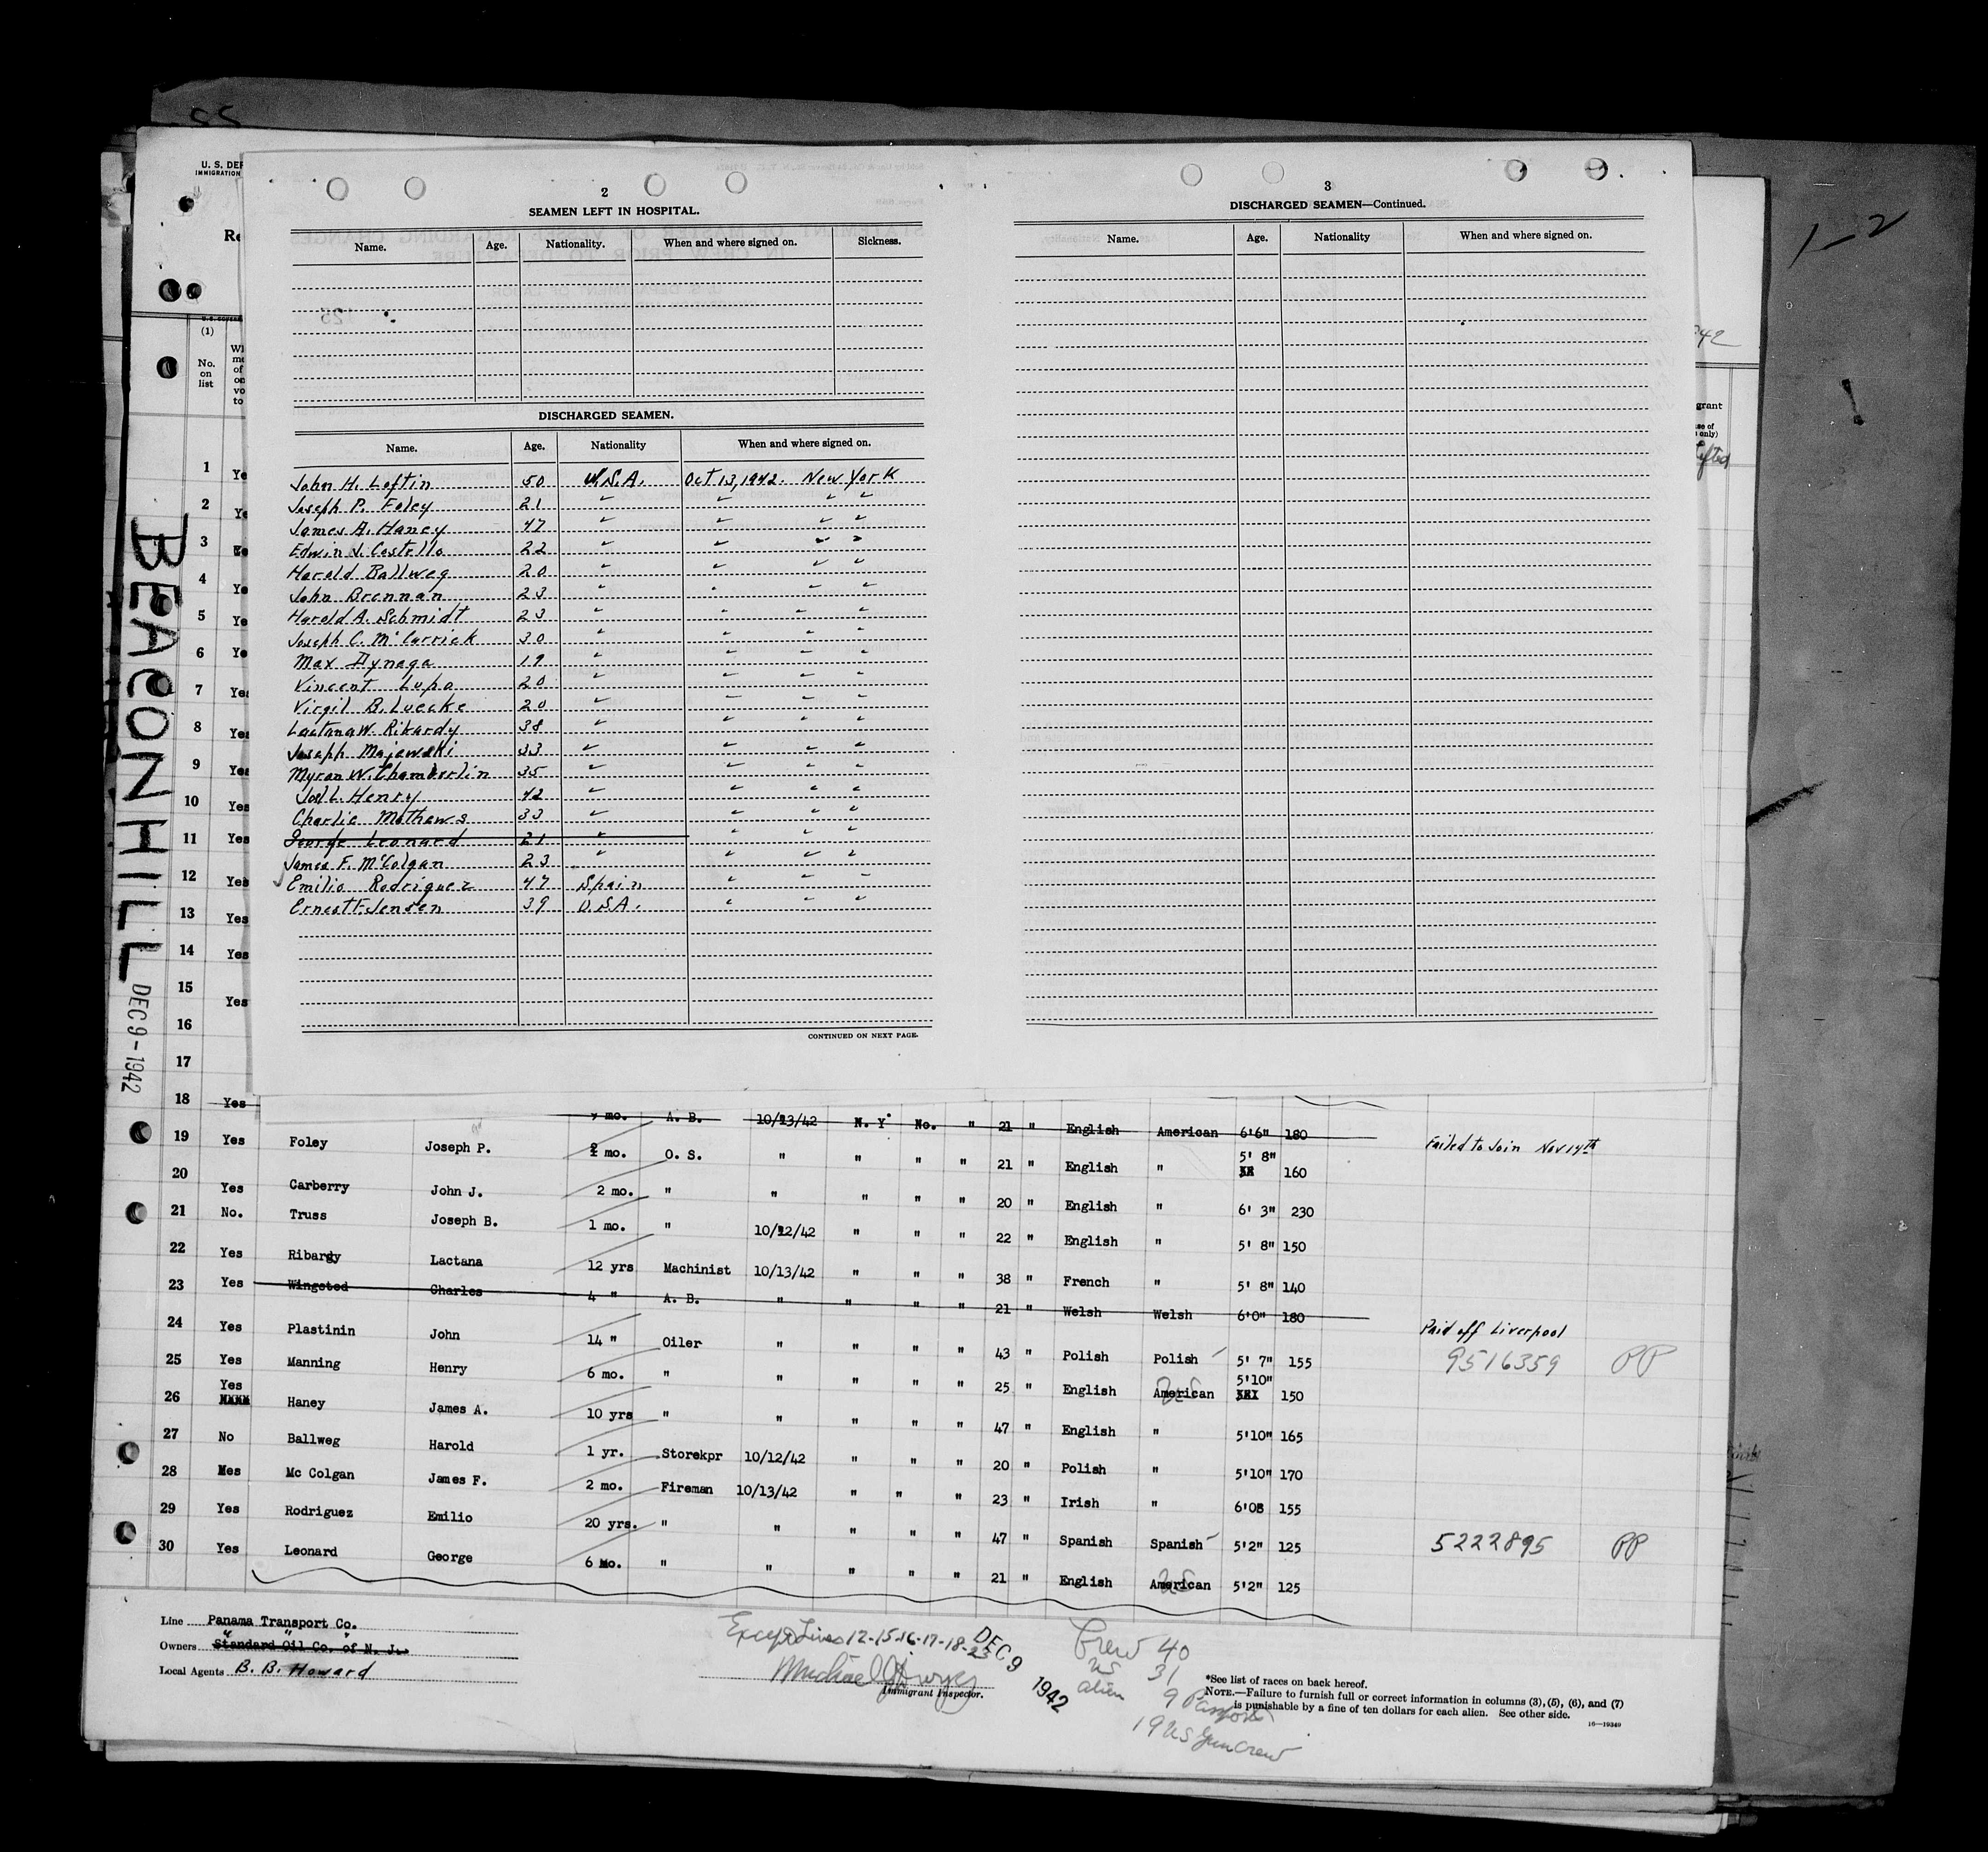 U. S. DEP
IMMIGRATION
Re
(1)
No.
on
list
2
SEAMEN LEFT IN HOSPITAL.
Name. Age. Nationality. When and where signed on. Sickness.
DISCHARGED SEAMEN.
Name. Age. Nationality When and where signed on.
John H. Loftin 50 U.S.A. Oct 13, 1942. New York
Joseph P. Foley 21 " " " "
James A. Haney 47 " " " "
Edwin J. Costello 22 " " " "
Harold Ballweg 20 " " " "
John Brennan 23 " " " "
Harold A. Schmidt 23 " " " "
Joseph C. McCarrick 30 " " " "
Max 19 " " " "
Vincent Lupo 20 " " " "
Virgil B. Luecke 20 " " " "
Lactana W. Ribardy 38 " " " "
Joseph Majewski 33 " " " "
Myron W. Chamberlin 35 " " " "
Joel L. Henry 42 " " " "
Charlie Mathews 33 " " " "
George Leonard 21 " " " "
James F. McColgan 23 " " " "
Emilio Rodriguez 47 Spain " " "
Ernest F. Jensen 39 U.S.A. " " "
CONTINUED ON NEXT PAGE.
3
DISCHARGED SEAMEN—Continued.
Name. Age. Nationality When and where signed on.
1-2
BEACON HILL
DEC 9-1942
1 Ye
2 Ye
3 Ye
4 Ye
5 Ye
6 Ye
7 Yes
8 Yes
9 Yes
10 Yes
11 Yes
12 Yes
13 Yes
14 Yes
15 Yes
16
17
18 Yes mo. A. B. 10/13/42 N. Y. No. " 21 " English American 6'6" 180
Failed to Join Nov 14th
19 Yes Foley Joseph P. 2 mo. O. S. " " " " 21 " English " 5' 8" 160
20 Yes Carberry John J. 2 mo. " " " " " 20 " English " 6' 3" 230
21 No. Truss Joseph B. 1 mo. " 10/12/42 " " " 22 " English " 5' 8" 150
22 Yes Ribardy Lactana 12 yrs Machinist 10/13/42 " " " 38 " French " 5' 8" 140
23 Yes Wingsted Charles 4 " A. B. " " " " 21 " Welsh Welsh 6'0" 180
Paid off Liverpool
24 Yes Plastinin John 14 " Oiler " " " " 43 " Polish Polish 5' 7" 155 9516359 PP
25 Yes Manning Henry 6 mo. " " " " " 25 " English American 5'10" 150
26 Yes Haney James A. 10 yrs " " " " " 47 " English " 5'10" 165
27 No Ballweg Harold 1 yr. Storekpr 10/12/42 " " " 20 " Polish " 5'10" 170
28 Mes Mc Colgan James F. 2 mo. Fireman 10/13/42 " " " 23 " Irish " 6'0B 155
29 Yes Rodriguez Emilio 20 yrs. " " " " " 47 " Spanish Spanish 5'2" 125 5222895 PP
30 Yes Leonard George 6 mo. " " " " " 21 " English American 5'2" 125
Line Panama Transport Co.
Owners Standard Oil Co. of N. J.
Local Agents B. B. Howard
Except Lines 12-15-16-17-18-23
DEC 9 1942
Immigrant Inspector.
Crew 40
US 31
alien 9 Passports
19 US Gun Crew
*See list of races on back hereof.
NOTE.—Failure to furnish full or correct information in columns (3), (5), (6), and (7)
is punishable by a fine of ten dollars for each alien. See other side.
16—19349